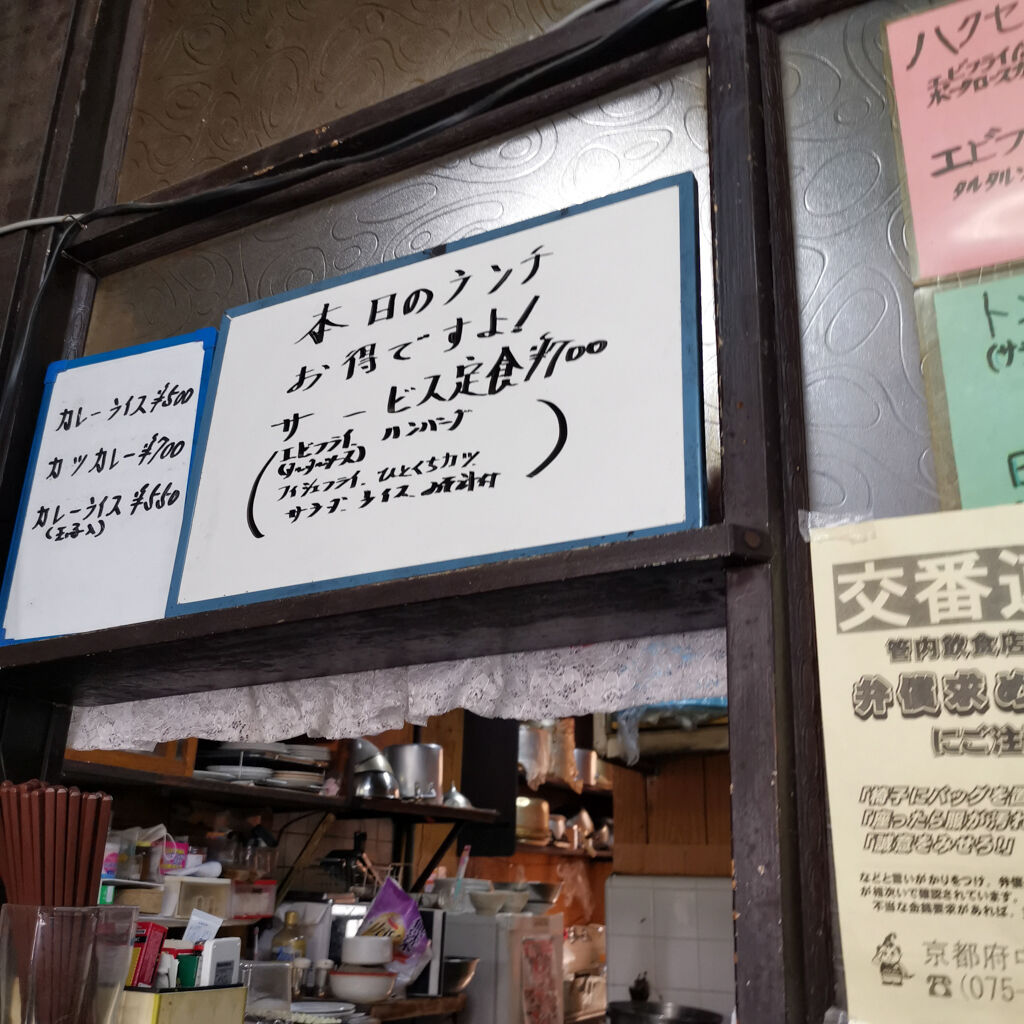 カレーライス¥500
カツカレー¥700
カレーライス¥550
(玉子入)
本日のランチ
お得ですよ!
サービス定食¥700
エビフライ ハンバーグ
(タータソース)
フィシュフライ、ひとくちカツ、
サラダ、ライス、みそ汁付
ハクセ
エビフライ
ポークロースカ
エビフ
タルタルソ
ト
(サ
日
交番
管内飲食店
弁償求め
にご注
「椅子にバッグを
「座ったら服が汚れ
「誠意をみせろ!」
などと言いがかりをつけ、弁償
が相次いで確認されています。
不当な金銭要求があれば、
京都府
☎(075-